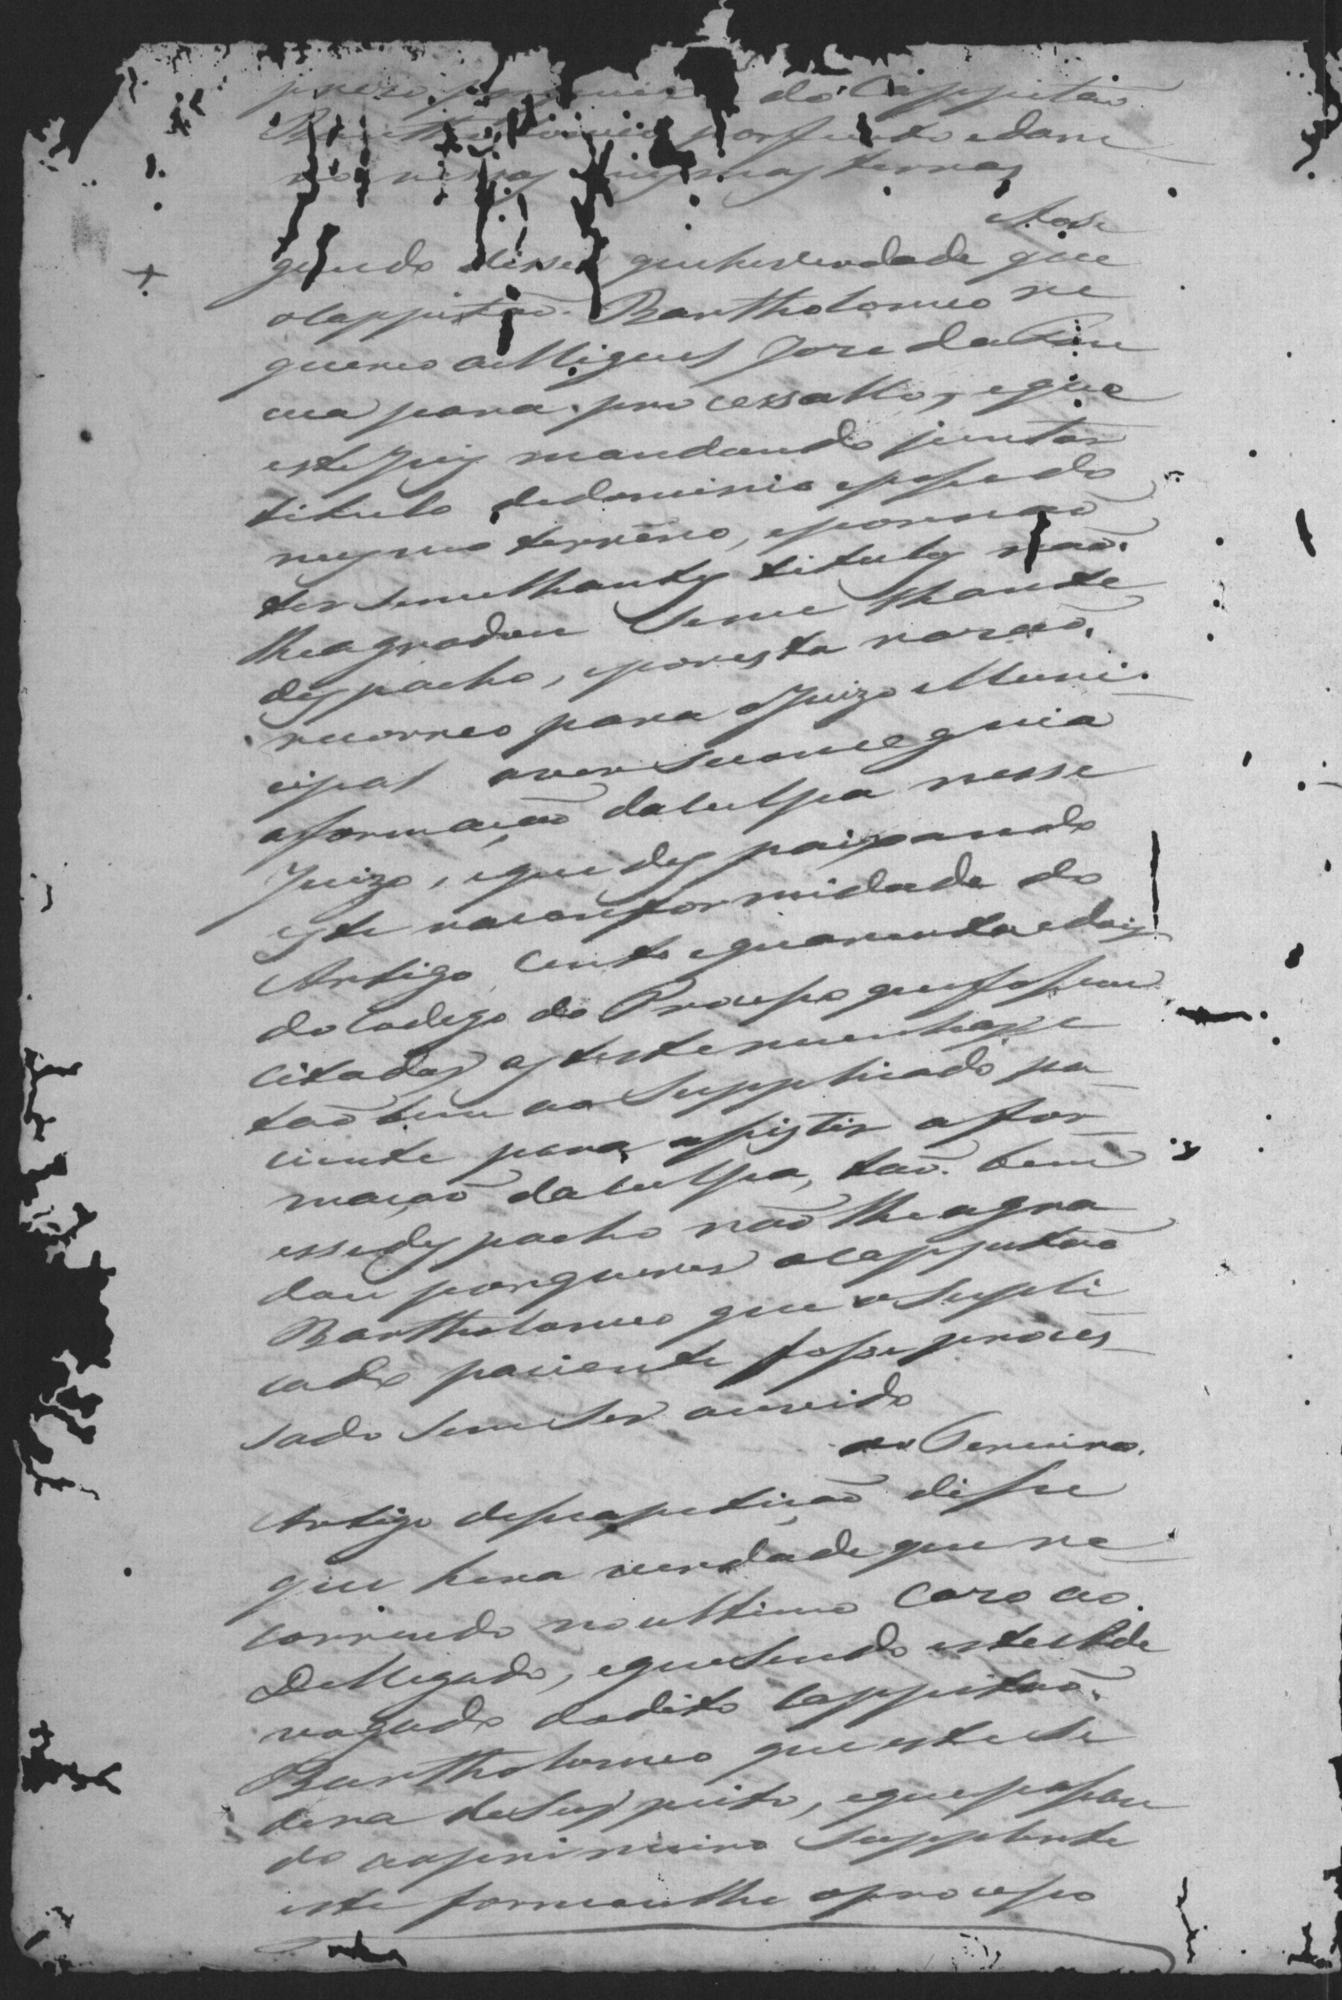 preso do Cappitão
Bartholomeo por furto e dam
no nessas mesmas terras
Ao Se
gundo disse que he verdade que
o Cappitão Bartholomeo re
quereo a Miguel Jose da
para processallo, e que
este Juiz mandando juntar
titulo de dominio e posse do
mesmo terreno, e por não
ter semelhantes titulos não
lhe agradou seme lhante
despacho, e por esta rasão
recorreo para o Juizo Muni
cipal a ver se conseguia
a formação da culpa nesse
Juizo, e que des paixando
este na conformidade do
Artigo cento e quarenta e dois
do Codego do Processo que fossem
citadas as testemunhas e
tão bem ao Supplicado pa
ciente para assistir a for
mação da culpa, tão bem
esse des pacho não lhe agra
dou porque quer o Cappitão
Bartholomeo que o Supli
cado paciente fosse proces
sado sem ser ouvido
ao Terceiro
Artigo de sua petição disse
que hera verdade que re
correndo no ultimo caso ao
Dellegado, e que sendo este
do dito Cappitão
Bartholomeo que este se
dera de Suspeito, e que passan
do ao primeiro Supplente
este formoulhe o processo